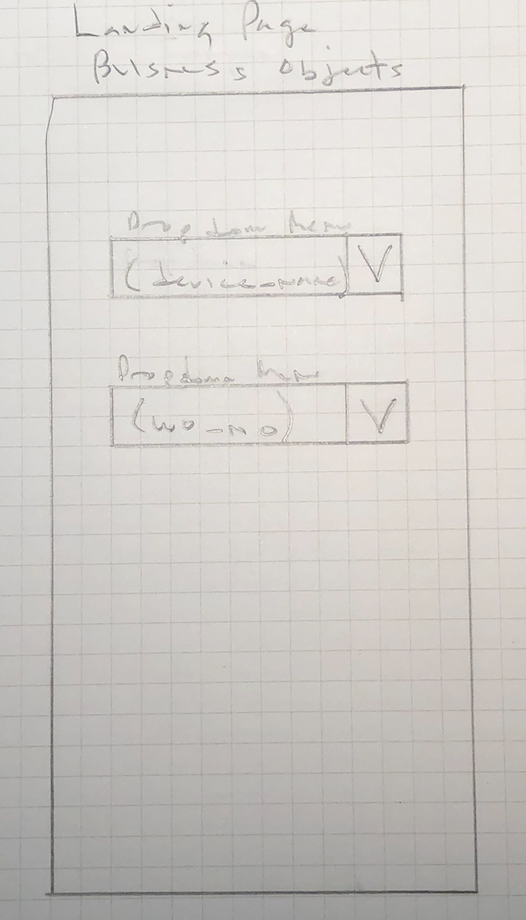 Landing Page
Buisness Objects
Dropdown Menu
(device_name)
V
Dropdown Menu
(wo_no)
V